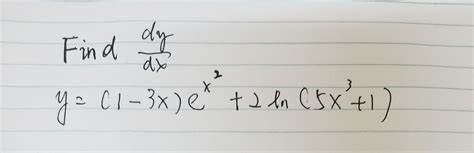 Find dy/dx
y = (1-3x)e^x^2 + 2 ln(5x^3+1)